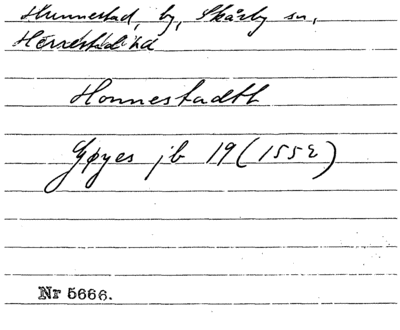 Hunnestad, by, Skårby sn,
Herrestads hd
Honnestadth
Gøyes jb 19 (1552)
Nr 5666.